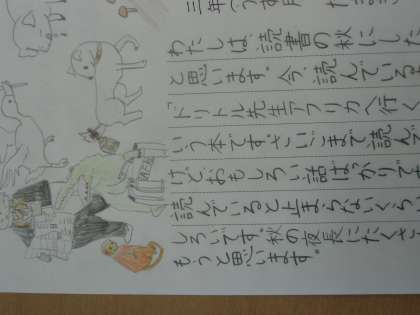 三年
わたしは、読書の秋にした
と思います。今、読んでいる
「ドリトル先生アフリカへ行
いう本です。さいごまで読んで
けどおもしろい話ばかりで
読んでいると止まらないくらい
しろいです。秋の夜長にたくさ
もうと思います。